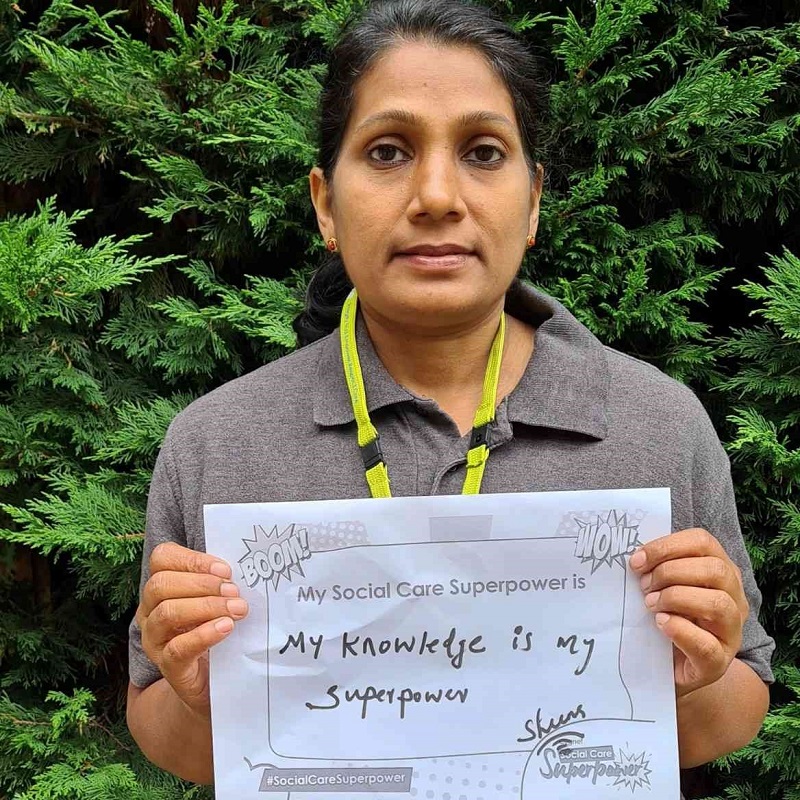 BOOM!
WOW!
My Social Care Superpower is
My knowledge is my
superpower
Social Care
Superpower
#SocialCareSuperpower